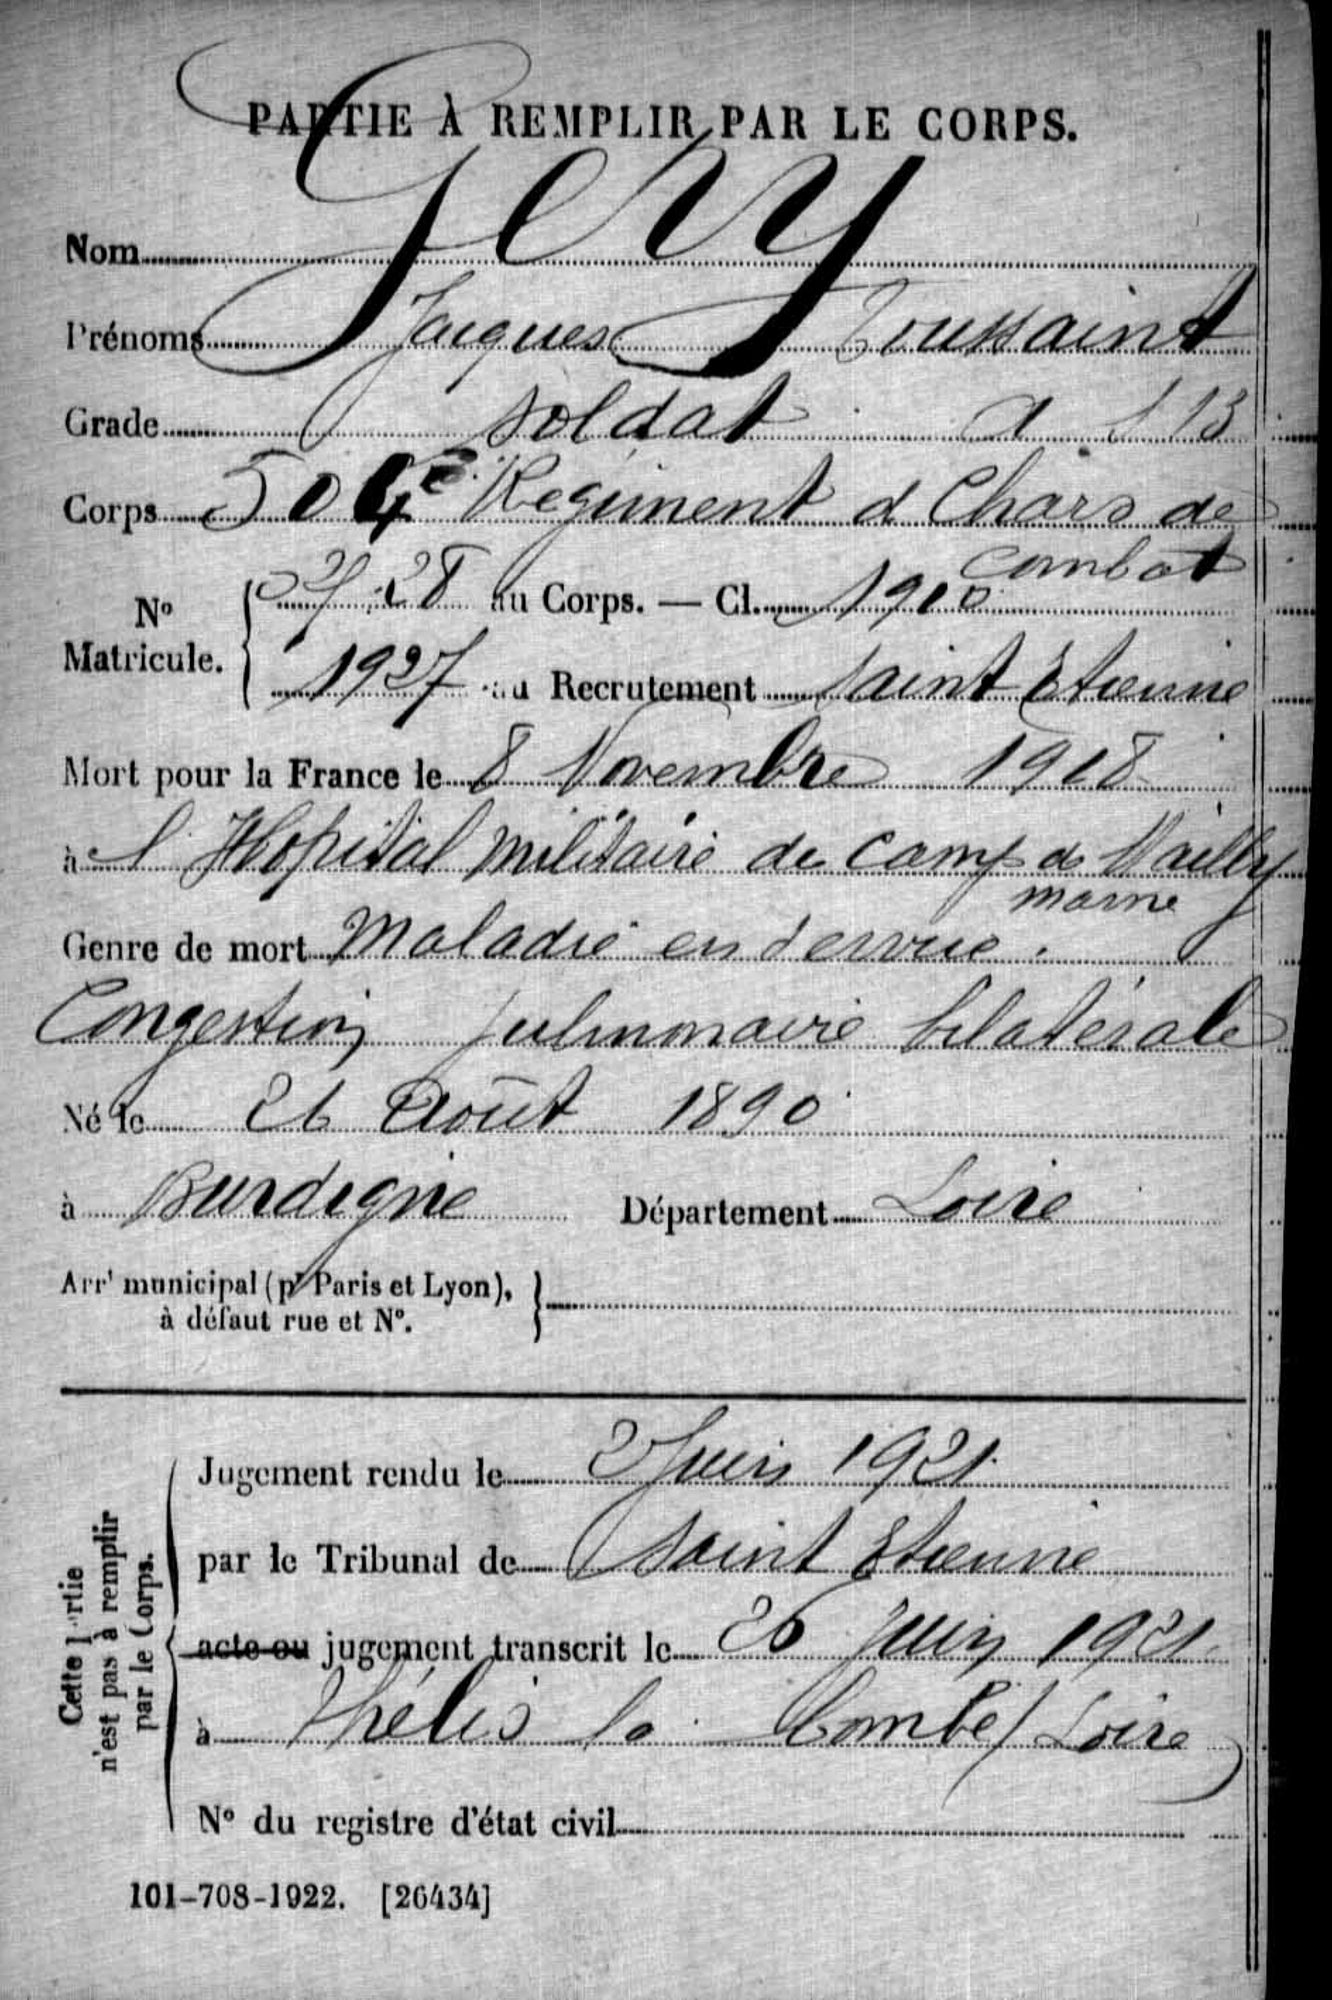 PARTIE À REMPLIR PAR LE CORPS.
Nom Gery
Prénoms Jacques Toussaint
Grade soldat A S 13
Corps 504e Régiment d Chars de
combat
No Matricule. 28 au Corps. — Cl. 1910
1927 au Recrutement Saint Etienne
Mort pour la France le 8 Novembre 1918
à l Hopital militaire de camp de Mailly
marne
Genre de mort Maladie en service.
Congestion pulmonaire bilatérale
Né le 26 Août 1890
à Burdigne Département Loire
Arrt municipal (pr Paris et Lyon),
à défaut rue et No.
Cette partie
n'est pas à remplir
par le Corps.
Jugement rendu le 2 Juin 1921
par le Tribunal de Saint Etienne
acte ou jugement transcrit le 26 Juin 1921
à Thélis la Combe (Loire)
No du registre d'état civil
101-708-1922. [26434]